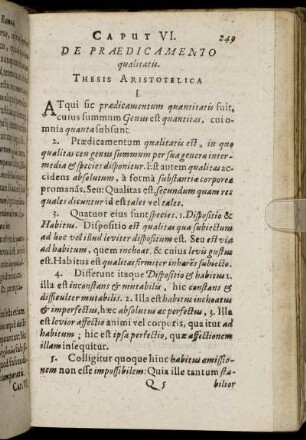 CAPUT VI. 249
DE PRÆDICAMENTO
qualitatis.
THESIS ARISTOTELICA
I.
ATqui sic prædicamentum quantitatis fuit,
cuius summum Genus est quantitas, cui o-
mnia quanta subsunt.
2. Prædicamentum qualitatis est, in quo
qualitas ceu genus summum per sua genera inter-
media & species disponitur. Est autem qualitas ac-
cidens absolutum, à formâ substantiæ corporeæ
promanãs. Seu: Qualitas est, secundum quam res
quales dicuntur id est tales vel tales.
3. Quatuor eius sunt species. 1. Dispositio &
Habitus. Dispositio est qualitas qua subiectum
ad hoc vel istud leviter dispositum est. Seu est via
ad habitum, quem inchoat, & cuius levis gustus
est. Habitus est qualitas firmiter inhærēs subiecto.
4. Differunt itaque Dispositio & habitus 1.
illa est inconstans & mutabilis, hic constans &
difficulter mutabilis. 2. Illa est habitus inchoatus
& imperfectus, hæc absolutus ac perfectus, 3. Illa
est levior affectio animi vel corporis, qua itur ad
habitum; hic est ipsa perfectio, quæ affectionem
illam insequitur.
5. Colligitur quoque hinc habitus amissio-
nem non esse impossibilem: Quia ille tantum sta-
Q 5 bilior